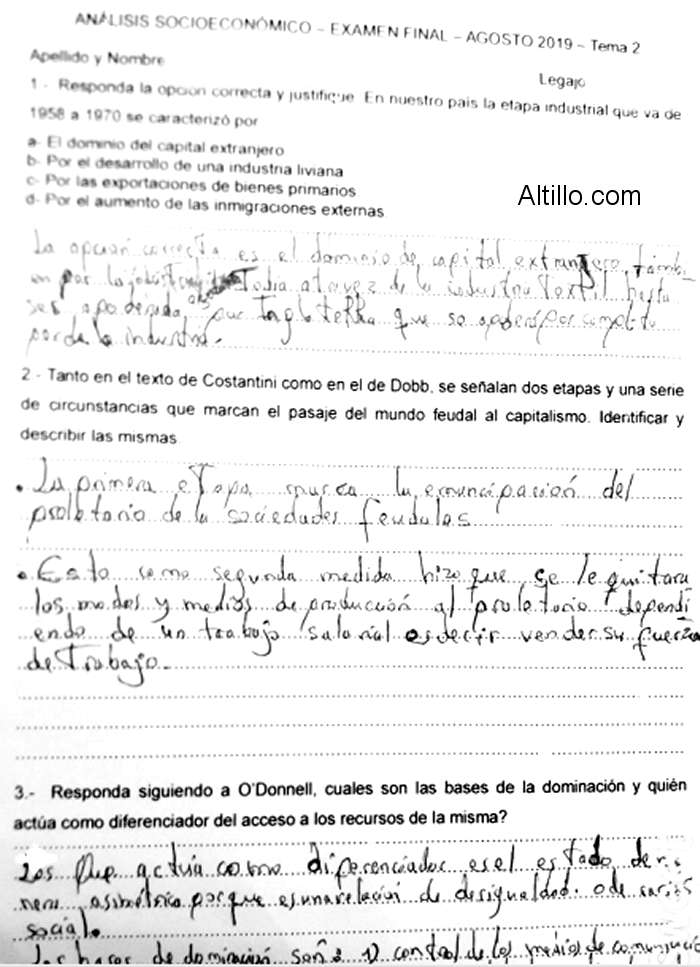 ANÁLISIS SOCIOECONÓMICO – EXAMEN FINAL – AGOSTO 2019 – Tema 2
Apellido y Nombre
Legajo
1 - Responda la opción correcta y justifique. En nuestro país la etapa industrial que va de
1958 a 1970 se caracterizó por
a- El dominio del capital extranjero
b- Por el desarrollo de una industria liviana
c- Por las exportaciones de bienes primarios
d- Por el aumento de las inmigraciones externas
Altillo.com
La opcion correcta es el dominio de capital extranjero, tambi
en por la a travez de la industria textil hasta
ser apoderada, por Inglaterra que se apodero por completo
por de la industria.
2 - Tanto en el texto de Costantini como en el de Dobb, se señalan dos etapas y una serie
de circunstancias que marcan el pasaje del mundo feudal al capitalismo. Identificar y
describir las mismas
• La primera etapa marca la emancipación del
proletario de la sociedades feudales
• Esto como segunda medida hizo que se le quitara
los modos y medios de producción al proletario dependi
endo de un trabajo salarial es decir vender su fuerza
de Trabajo.
3.- Responda siguiendo a O'Donnell, cuales son las bases de la dominación y quién
actúa como diferenciador del acceso a los recursos de la misma?
Los que actúa como diferenciador es el estado de
nera asimétrica porque es una relación de desigualdad. o de
social.
Las bases de dominación son: 1) control de los medios de comunicació